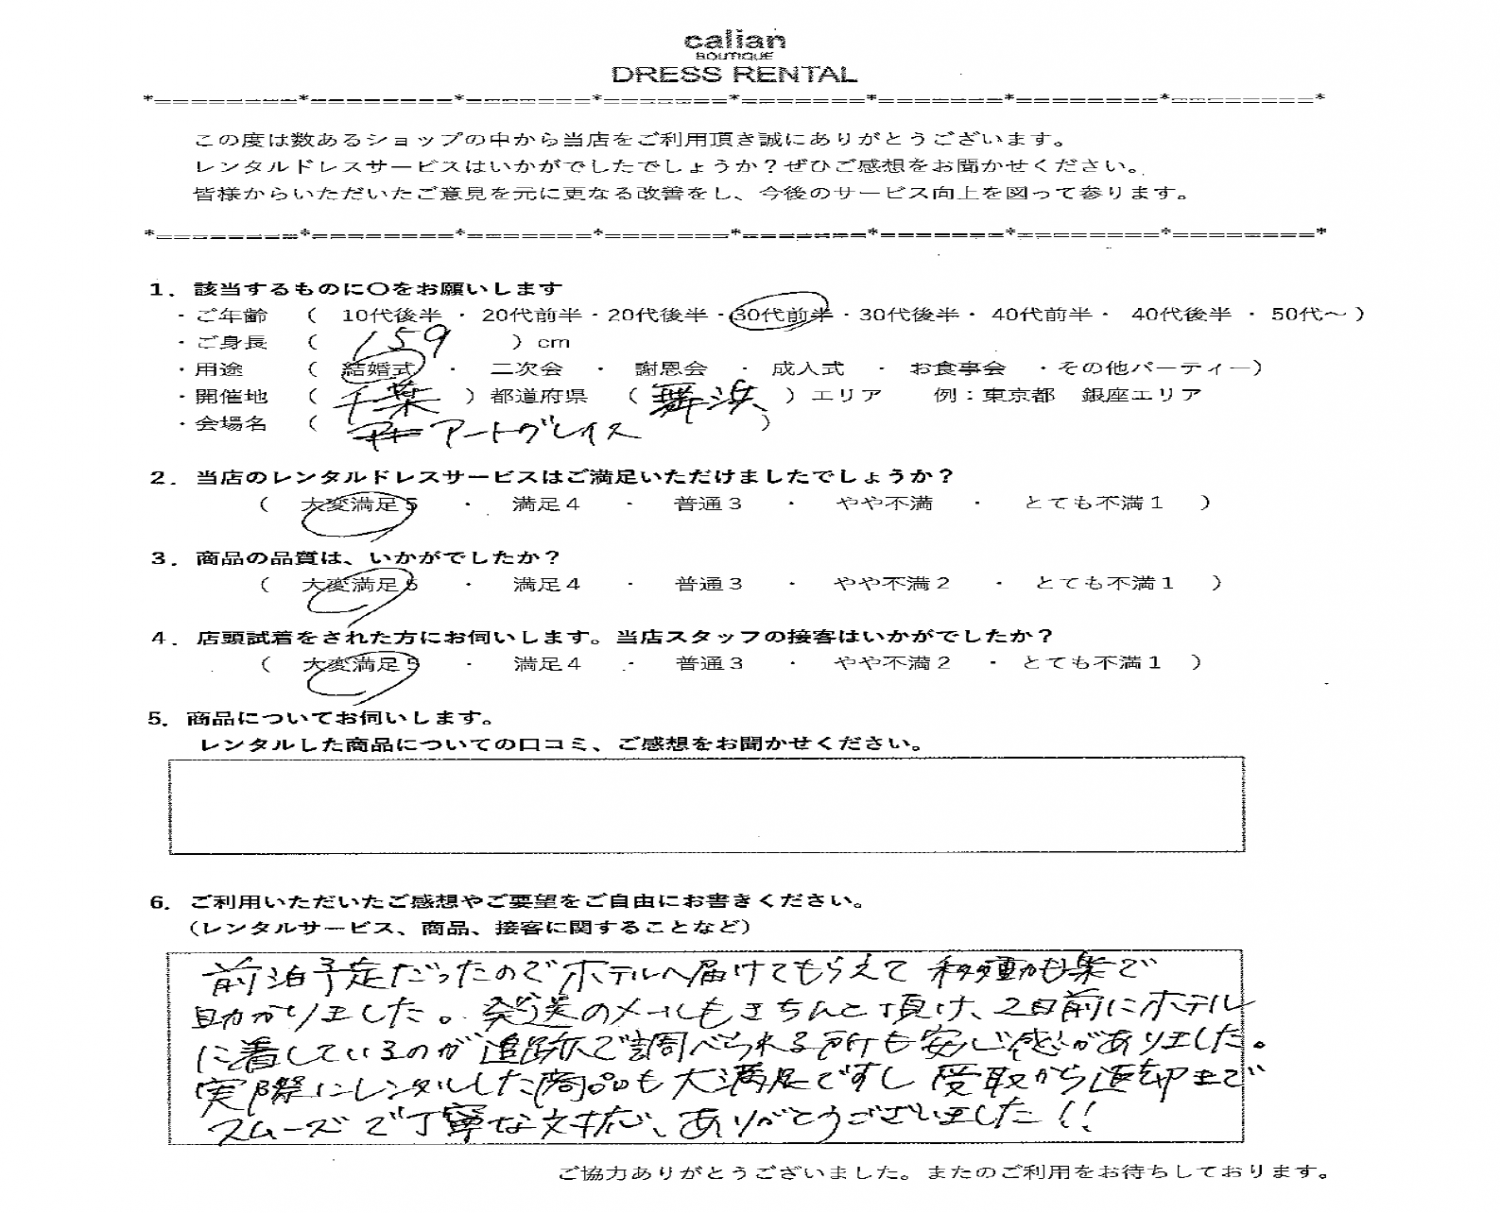 calian
BOUTIQUE
DRESS RENTAL
*========*========*=======*=======*=======*=======*========*========*
この度は数あるショップの中から当店をご利用頂き誠にありがとうございます。
レンタルドレスサービスはいかがでしたでしょうか？ぜひご感想をお聞かせください。
皆様からいただいたご意見を元に更なる改善をし、今後のサービス向上を図って参ります。
*========*========*=======*=======*=======*=======*========*========*
1．該当するものに〇をお願いします
・ご年齢 （ 10代後半 ・ 20代前半・20代後半・30代前半・30代後半・ 40代前半・ 40代後半 ・ 50代～ ）
・ご身長 （ 159 ）cm
・用途 （ 結婚式 ・ 二次会 ・ 謝恩会 ・ 成人式 ・ お食事会 ・その他パーティー）
・開催地 （ 千葉 ）都道府県 （ 舞浜 ）エリア 例：東京都 銀座エリア
・会場名 （ アートグレイス ）
2．当店のレンタルドレスサービスはご満足いただけましたでしょうか？
（ 大変満足５ ・ 満足４ ・ 普通３ ・ やや不満 ・ とても不満１ ）
3．商品の品質は、いかがでしたか？
（ 大変満足５ ・ 満足４ ・ 普通３ ・ やや不満２ ・ とても不満１ ）
4．店頭試着をされた方にお伺いします。当店スタッフの接客はいかがでしたか？
（ 大変満足５ ・ 満足４ ・ 普通３ ・ やや不満２ ・ とても不満１ ）
5．商品についてお伺いします。
レンタルした商品についての口コミ、ご感想をお聞かせください。
6．ご利用いただいたご感想やご要望をご自由にお書きください。
（レンタルサービス、商品、接客に関することなど）
前泊予定だったのでホテルへ届けてもらえて 移動も楽で
助かりました。発送のメールもきちんと頂け、2日前にホテル
に着しているのが追跡で調べられる所も安心感がありました。
実際にレンタルした商品も大満足ですし 受取から返却まで
スムーズで丁寧な対応、ありがとうございました!!
ご協力ありがとうございました。またのご利用をお待ちしております。